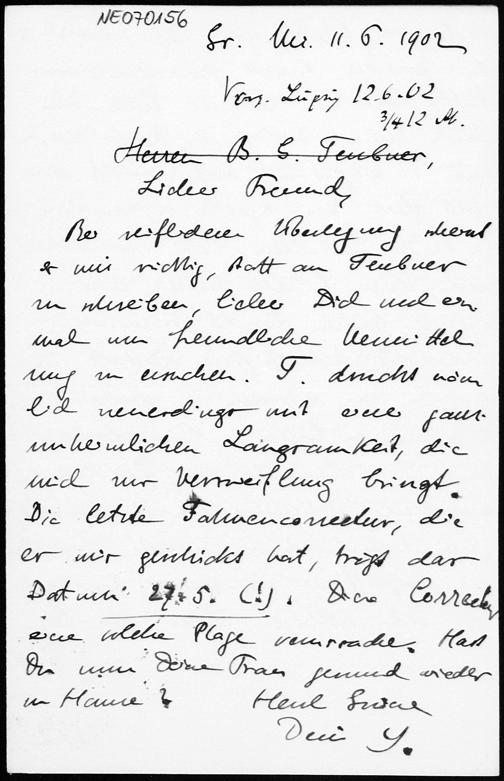 NE070156
Gr. 11. 6. 1902
Leipzig 12.6.02
3/4 12
Herren B. G. Teubner,
Lieber Freund,
Bei reiflicher Überlegung scheint
es mir richtig, statt an Teubner
zu schreiben, lieber Dich noch ein
mal um freundliche Vermittel
ung zu ersuchen. T. druckt näm
lich neuerdings mit einer ganz
unheimlichen Langsamkeit, die
mich zur Verzweiflung bringt.
Die letzte Fahnencorrectur, die
er mir geschickt hat, trägt das
Datum 27. 5. (!).
eine solche Plage verursache. Hast
Du nun Deine Frau gesund wieder
zu Hause? Herzl Grüsse
Dein